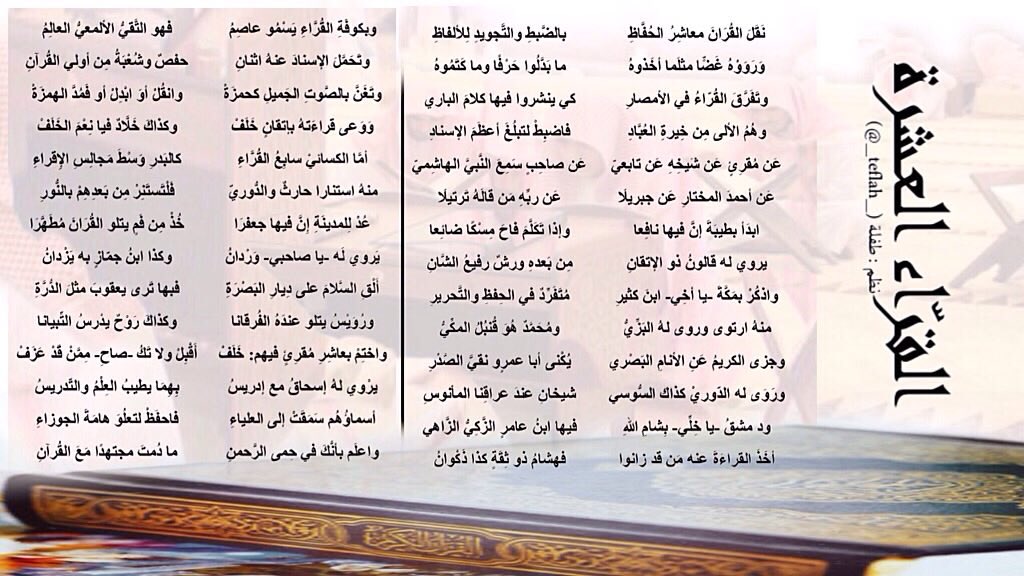 القرّاء العشرة
نظم : طفلة (_teflah_@)
نَقَلَ القُرَانَ معاشِرُ الحُفَّاظِ بالضَّبطِ والتَّجويدِ لِلألفاظِ
وَرَوَوْهُ غَضًّا مثلَما أخَذوهُ ما بَدَّلُوا حَرْفًا وما كَتَمُوهُ
وتَفَرَّقَ القُرَّاءُ في الأمصارِ كي ينشروا فيها كلامَ الباري
وهُمُ الألى مِن خِيرةِ العُبَّادِ فاضبِطْ لتبلُغَ أعظَمَ الإسنادِ
عَن مُقرئٍ عَن شَيخِهِ عَن تابعيّ عَن صاحبٍ سَمِعَ النَّبيَّ الهاشميّ
عَن أحمدَ المختارِ عَن جبريلَا عَن ربِّهِ مَن قالَهُ ترتيلَا
ابدَأ بطيبَةَ إنَّ فيها نافِعا وإذا تَكَلَّمَ فاحَ مِسْكًا ضائِعا
يروي له قالونُ ذو الإتقانِ مِن بَعدهِ ورشٌ رفيعُ الشَّانِ
واذكُرْ بمَكّةَ -يا أخي- ابنَ كثيرِ مُتَفَرِّدٌ في الحِفظِ والتَّحريرِ
منهُ ارتوى وروى لهُ البَزِّيُّ ومُحَمَدٌ هُوَ قُنبُلُ المكّيُّ
وجزى الكريمُ عَنِ الأنامِ البَصْري يُكْنى أبا عمرٍو نقيَّ الصَّدْرِ
ورَوَى له الدّوريْ كذاكَ السُّوسي شيخانِ عندَ عراقِنا المأنوسِ
ود مشقُ -يا خلِّي- بِشامِ اللهِ فيها ابنُ عامرٍ الزَّكيُّ الزَّاهي
أخَذَ القراءةَ عنه مَن قد زانوا فهشامُ ذو ثِقةٍ كذا ذَكْوانُ
وبكوفَةِ القُرَّاءِ يَسْمُو عاصِمُ فهو التَّقيُّ الألمعيُّ العالِمُ
وتَحَمَّلَ الإسنادَ عنهُ اثْنانِ حفصٌ وشُعْبَةُ مِن أولي القُرآنِ
وتَغَنَّ بالصَّوتِ الجَميلِ كحمزَةْ وانقُلْ أوَ ابْدِلْ أو فَمُدَّ الهمزَةْ
وَوَعى قراءَتَهُ بإتقانٍ خَلَفْ وكذاكَ خَلَّادٌ فيا نِعْمَ الخَلَفْ
أمَّا الكسائيْ سابِعُ القُرَّاءِ كالبَدرِ وَسْطَ مَجالِسِ الإقراءِ
منهُ استنارا حارثٌ والدُّوريّ فَلْتَستَنِرْ مِن بَعدِهِمْ بالنُّورِ
عُدْ لِلمدينَةِ إنَّ فيها جعفرَا خُذْ مِن فمٍ يتلو القُرَانَ مُطَهَّرَا
يَروي لَه -يا صاحبي- وَرْدانُ وكذا ابنُ جمّازٍ به يَزْدانُ
ألْقِ السَّلامَ على دِيارِ البَصْرَةِ فبها تَرى يعقوبَ مثلَ الدُّرَّةِ
ورُوَيْسُ يتلو عندَهُ الفُرقانا وكذاكَ رَوْحٌ يدْرسُ التِّبيانا
واختِمْ بعاشِرِ مُقرئٍ فيهم: خَلَفْ أقْبِلْ ولا تَكُ -صاحِ- مِمَّنْ قَدْ عَزَفْ
يرْوي لهُ إسحاقُ مع إدريسُ بِهِما يطيبُ العِلْمُ والتَّدريسُ
أسماؤُهم سَمَقَتْ إلى العلياءِ فاحفَظْ لتعلُوَ هامةَ الجوزاءِ
واعلَم بأنَّكَ في حِمى الرَّحمنِ ما دُمتَ مجتهدًا مَعَ القُرآنِ